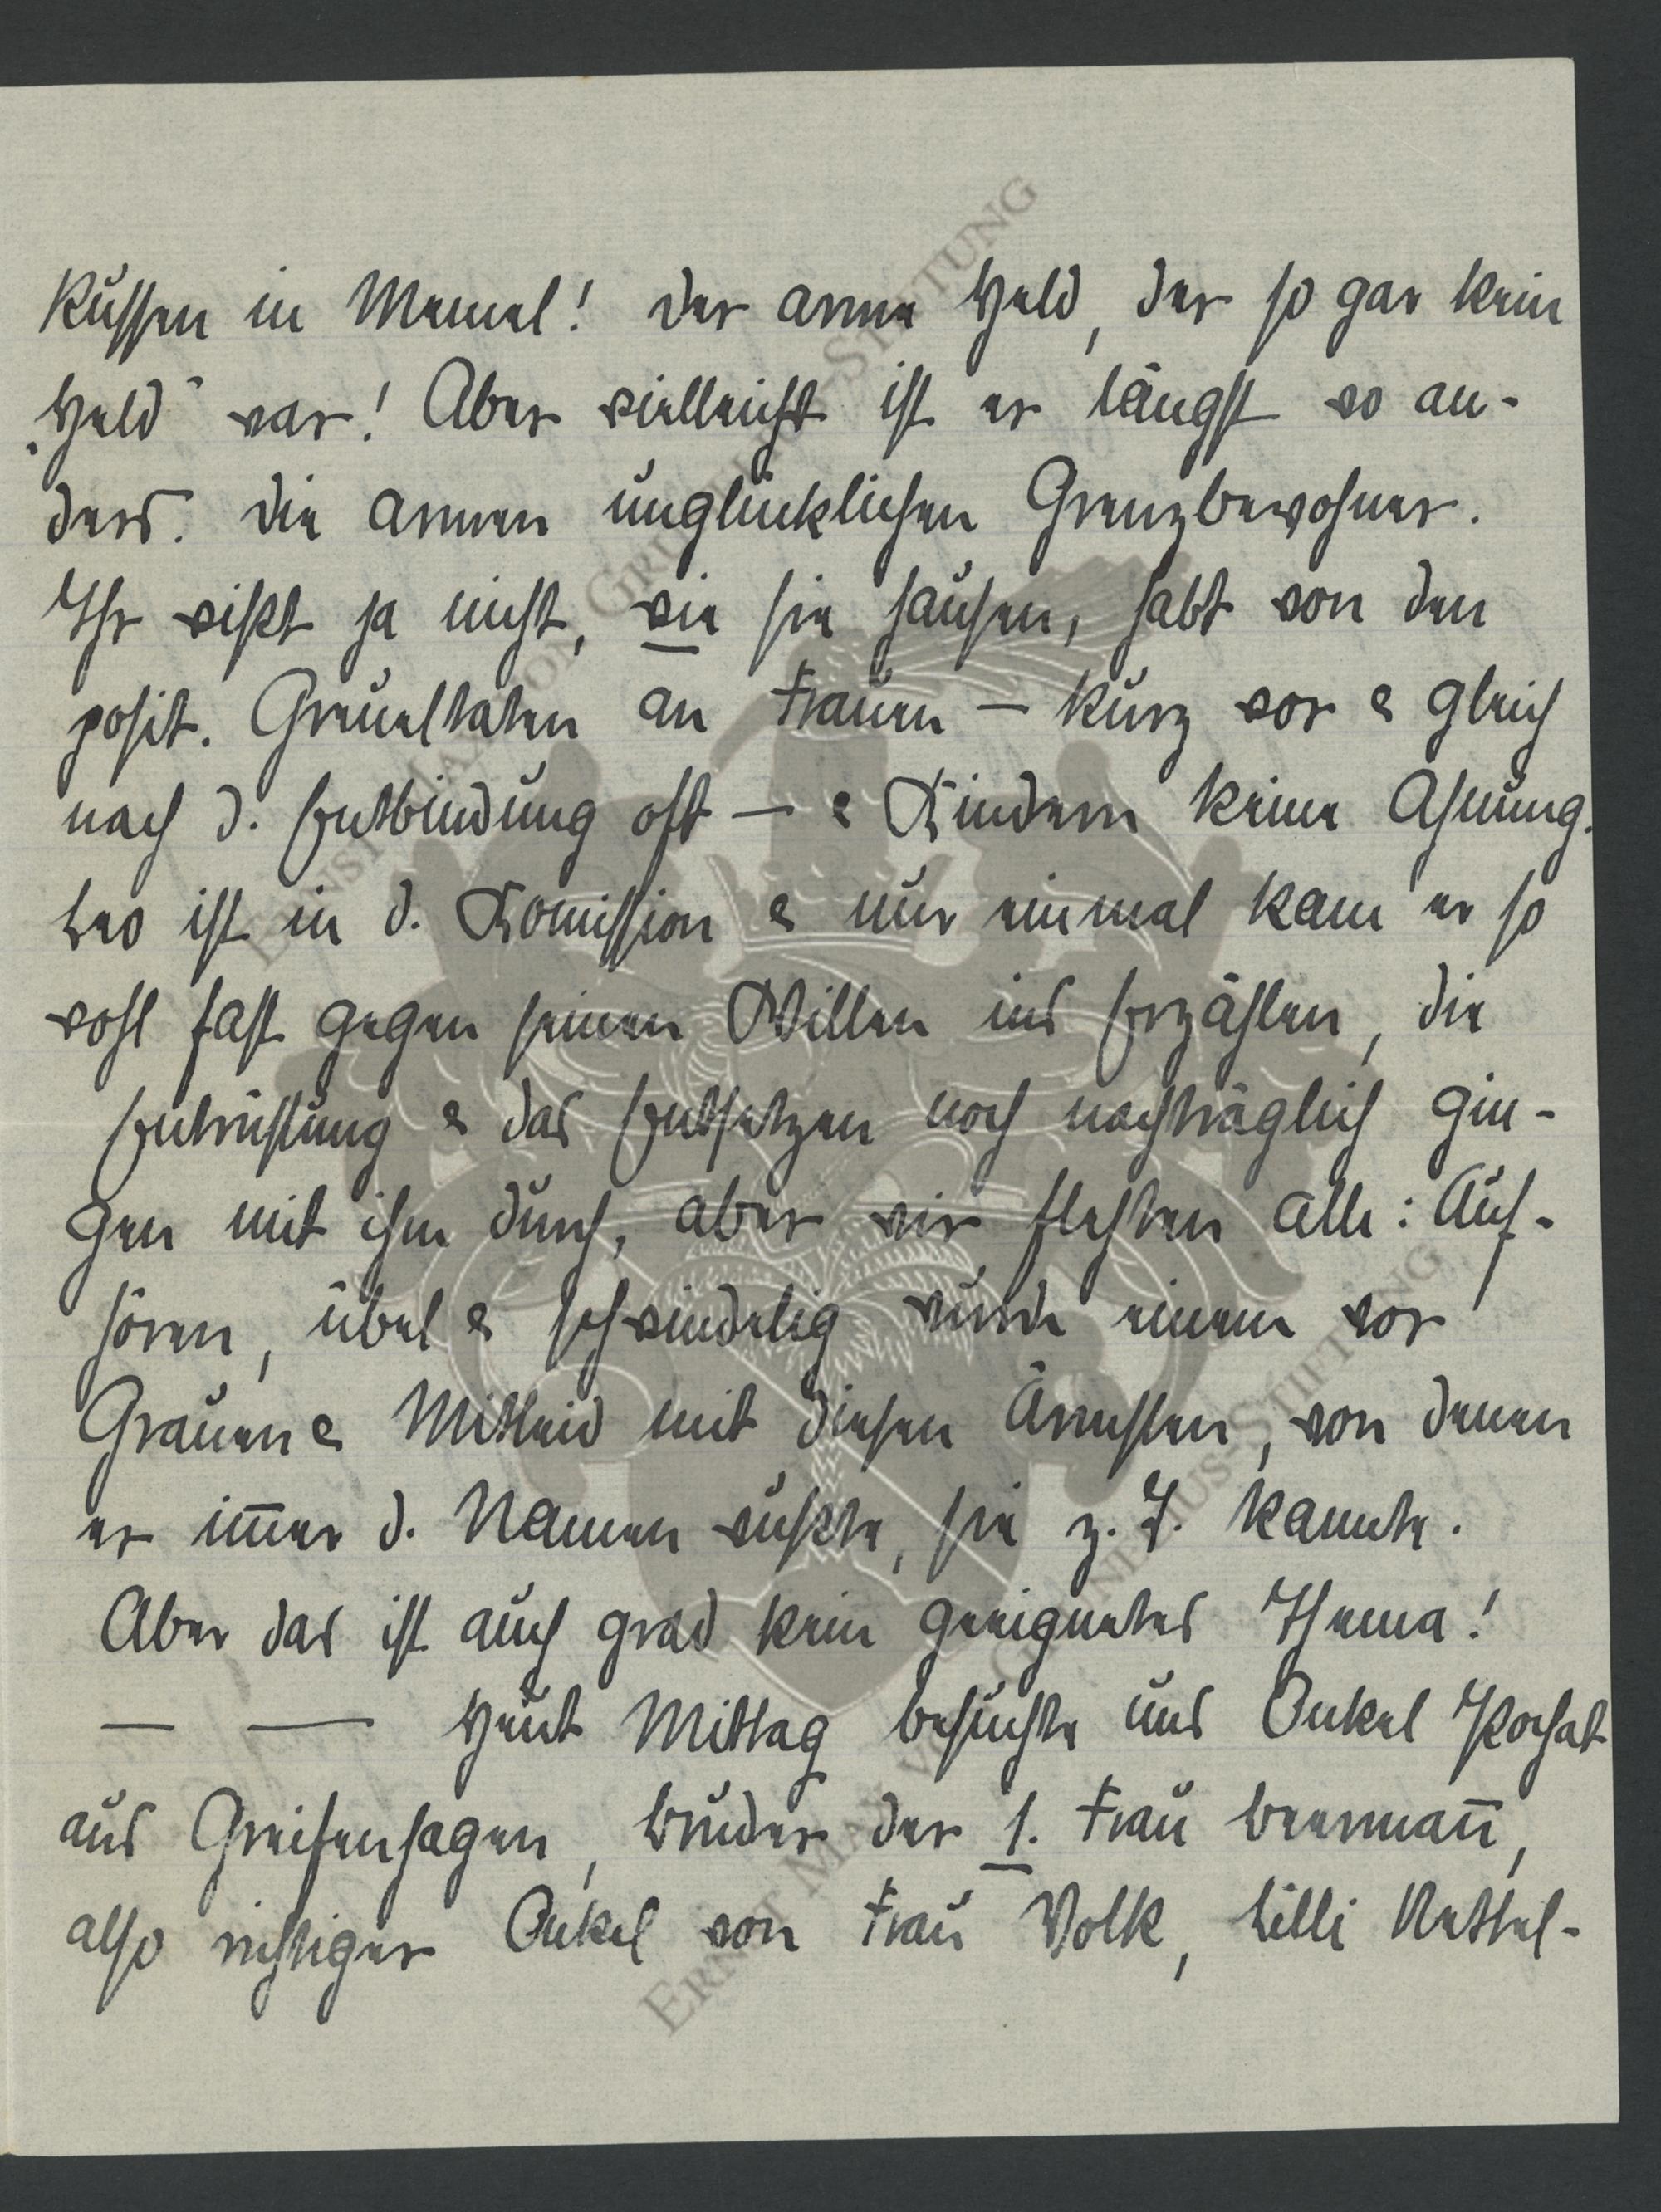 Russen in Memel! Der arme Held, der so gar kein
„Held" war! Aber vielleicht ist er längst wo an-
ders. Die armen unglücklichen Grenzbewohner.
Ihr wißt ja nicht, wie sie hausen, habt von den
posit. Greueltaten an Frauen – kurz vor & gleich
nach d. Entbindung oft – & Kindern keine Ahnung.
Leo ist in d. Kom̄ission & nur einmal kam er so
wohl fast gegen seinen Willen ins Erzählen, die
Entrüstung & das Entsetzen noch nachträglich gin-
gen mit ihm durch, aber wir flehten alle: Auf-
hören, übel & schwindelig wurde einem vor
Grauen & Mitleid mit diesen Ärmsten, von denen
er im̄er d. Namen wußte, sie z. T. kannte.
Aber das ist auch grad kein geeignetes Thema!
— — Heut Mittag besuchte uns Onkel Kochat
aus Greifenhagen, Bruder der 1. Frau Beerman̄,
also richtiger Onkel von Frau Volk, Lilli Nettel-
ERNST MAX VON GRUNELIUS-STIFTUNG
ERNST MAX VON GRUNELIUS-STIFTUNG